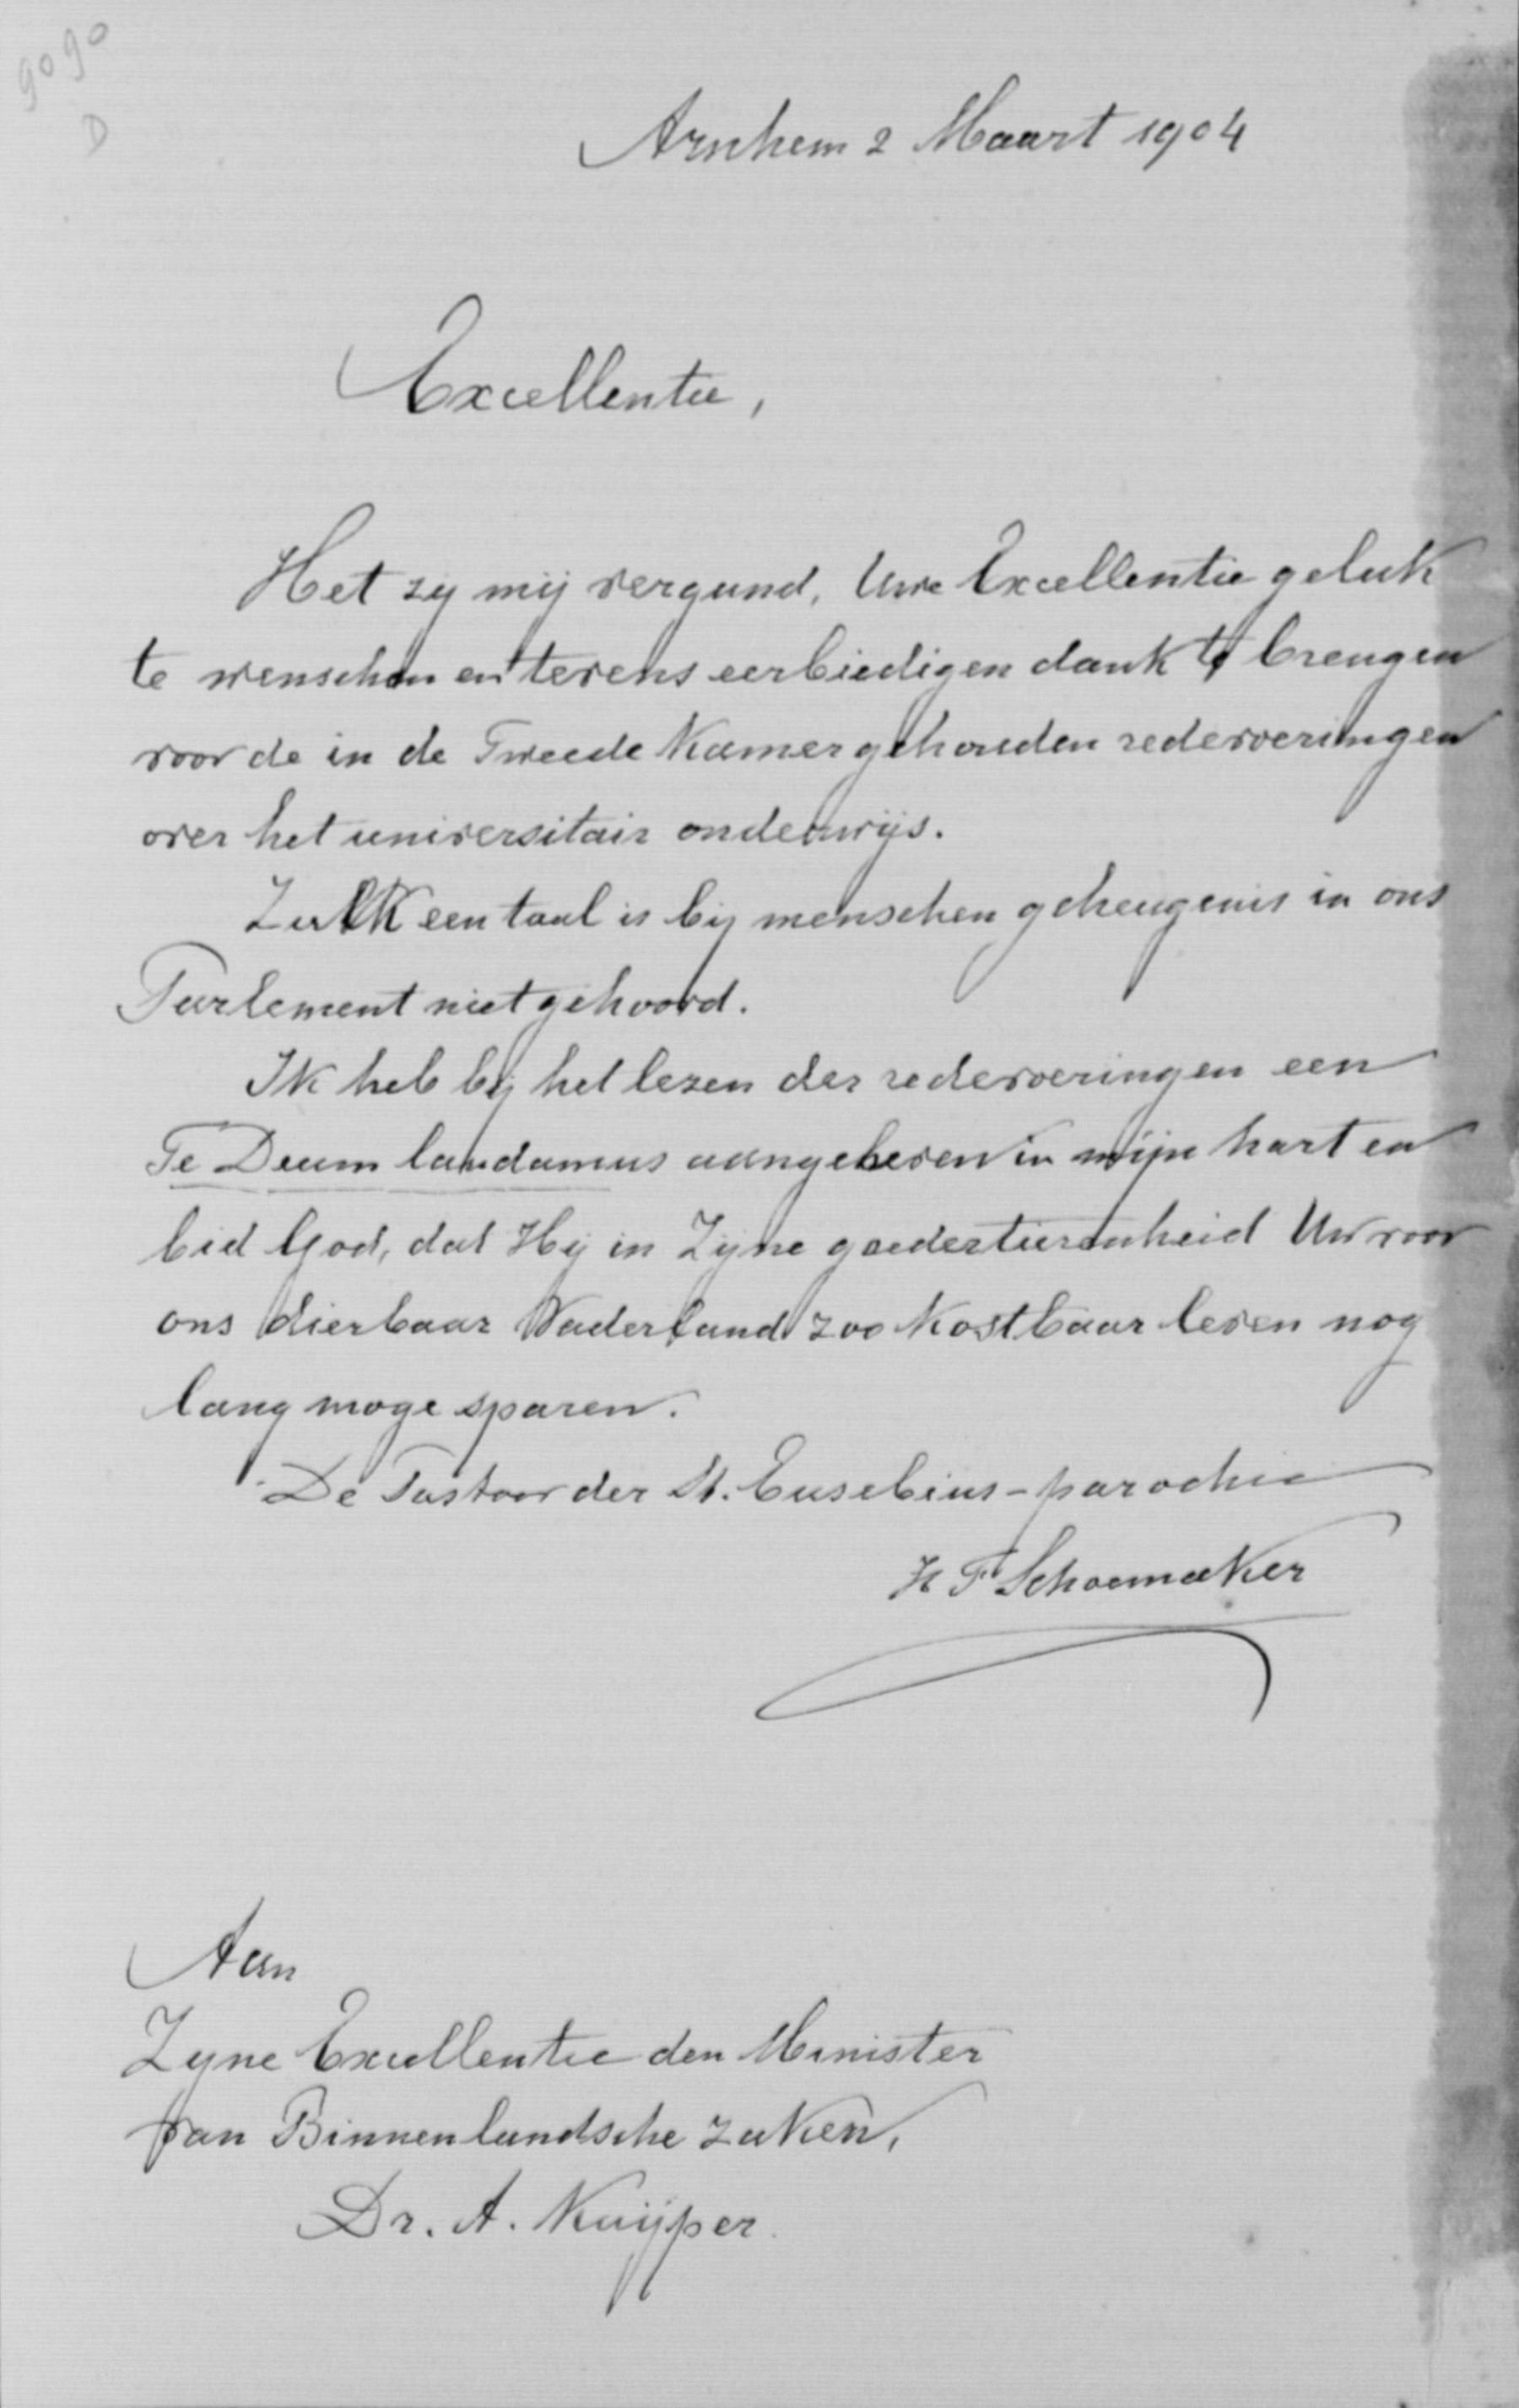 9090
D
Arnhem 2 Maart 1904
Excellentie,
Het zij mij vergund, Uwe Excellentie geluk
te wenschen en tevens eerbiedigen dank te brengen
voor de in de Tweede Kamer gehouden redevoeringen
over het universitair onderwijs.
Zulk een taal is bij menschen geheugenis in ons
Parlement niet gehoord.
Ik heb bij het lezen der redevoeringen een
Te Deum laudamus aangeheven in mijn hart en
bid God, dat Hij in Zijne goedertierenheid Uw voor
ons dierbaar Vaderland zoo kostbaar leven nog
lang moge sparen.
De Pastoor der St. Eusebius-parochie
H F Schoemaker
Aan
Zijne Excellentie den Minister
van Binnenlandsche Zaken,
Dr. A. Kuijper.